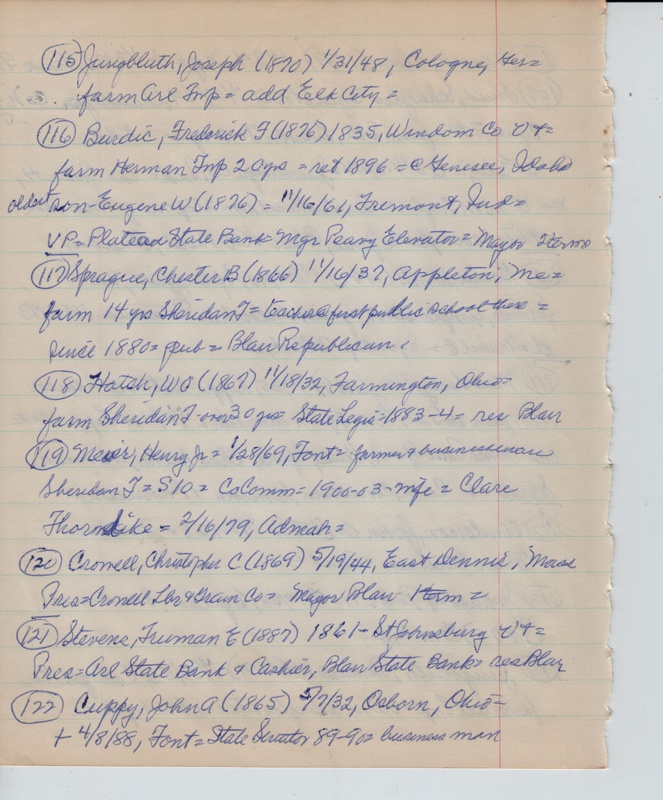 (115) Jungbluth, Joseph (1870) 1/31/48, Cologne, Ger=
farm Arl Twp = add Elk City =
(116) Burdic, Frederick F (1876) 1835, Windom Co Vt =
farm Herman Twp 20 yrs = ret 1896 = Genesee, Idaho
oldest son - Eugene W (1876) = 11/16/61, Fremont, Ind =
VP = Plateau State Bank = Mgr Peavy Elevator = Mayor 2 terms
(117) Sprague, Chester B (1866) 11/16/37, Appleton, Me =
farm 14 yrs Sheridan T = teacher @ first public school there =
since 1880 = pub = Blair Republican
(118) Hatch, WO (1867) 11/18/32, Farmington, Ohio =
farm Sheridan T - over 30 yrs = State Legis = 1883-4 = res Blair
(119) Meier, Henry Jr = 1/28/69, Font = farmer & businessman
Sheridan T = S10 = CoComm = 1900-03 - mfe = Clare
Thorndike = 2/16/79, Admah =
(120) Crowell, Christopher C (1869) 5/19/44, East Dennis, Mass
Pres = Crowell Lbr & Grain Co = Mayor Blair 1 term =
(121) Stevens, Truman E (1887) 1861 - St Johnsburg Vt =
Pres = Arl State Bank & Cashier, Blair State Bank = res Blair
(122) Cuppy, John A (1865) 5/7/32, Osborn, Ohio -
+ 4/8/88, Font = State Senator 89-90 = business man